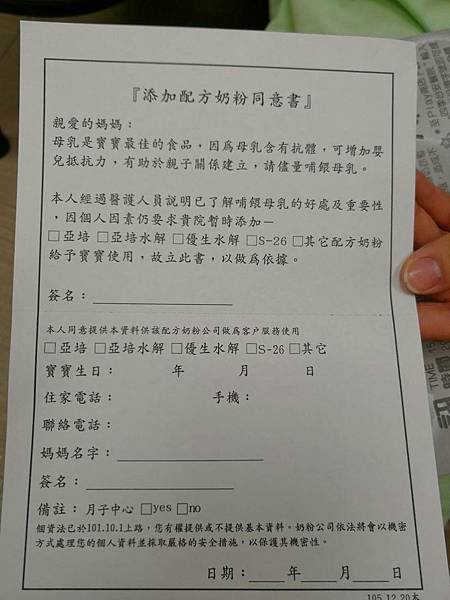 『添加配方奶粉同意書』
親愛的媽媽：
母乳是寶寶最佳的食品，因為母乳含有抗體，可增加嬰
兒抵抗力，有助於親子關係建立，請儘量哺餵母乳。
本人經過醫護人員說明已了解哺餵母乳的好處及重要性
，因個人因素仍要求貴院暫時添加－
□亞培 □亞培水解 □優生水解 □S-26 □其它配方奶粉
給予寶寶使用，故立此書，以做為依據。
簽名：
本人同意提供本資料供該配方奶粉公司做為客户服務使用
□亞培 □亞培水解 □優生水解 □S-26 □其它
寶寶生日： 年 月 日
住家電話： 手機：
聯絡電話：
媽媽名字：
簽名：
備註：月子中心 □yes □no
個資法已於101.10.1上路，您有權提供或不提供基本資料。奶粉公司依法將會以機密
方式處理您的個人資料並採取嚴格的安全措施，以保護其機密性。
日期： 年 月 日
105.12.20本
TIME